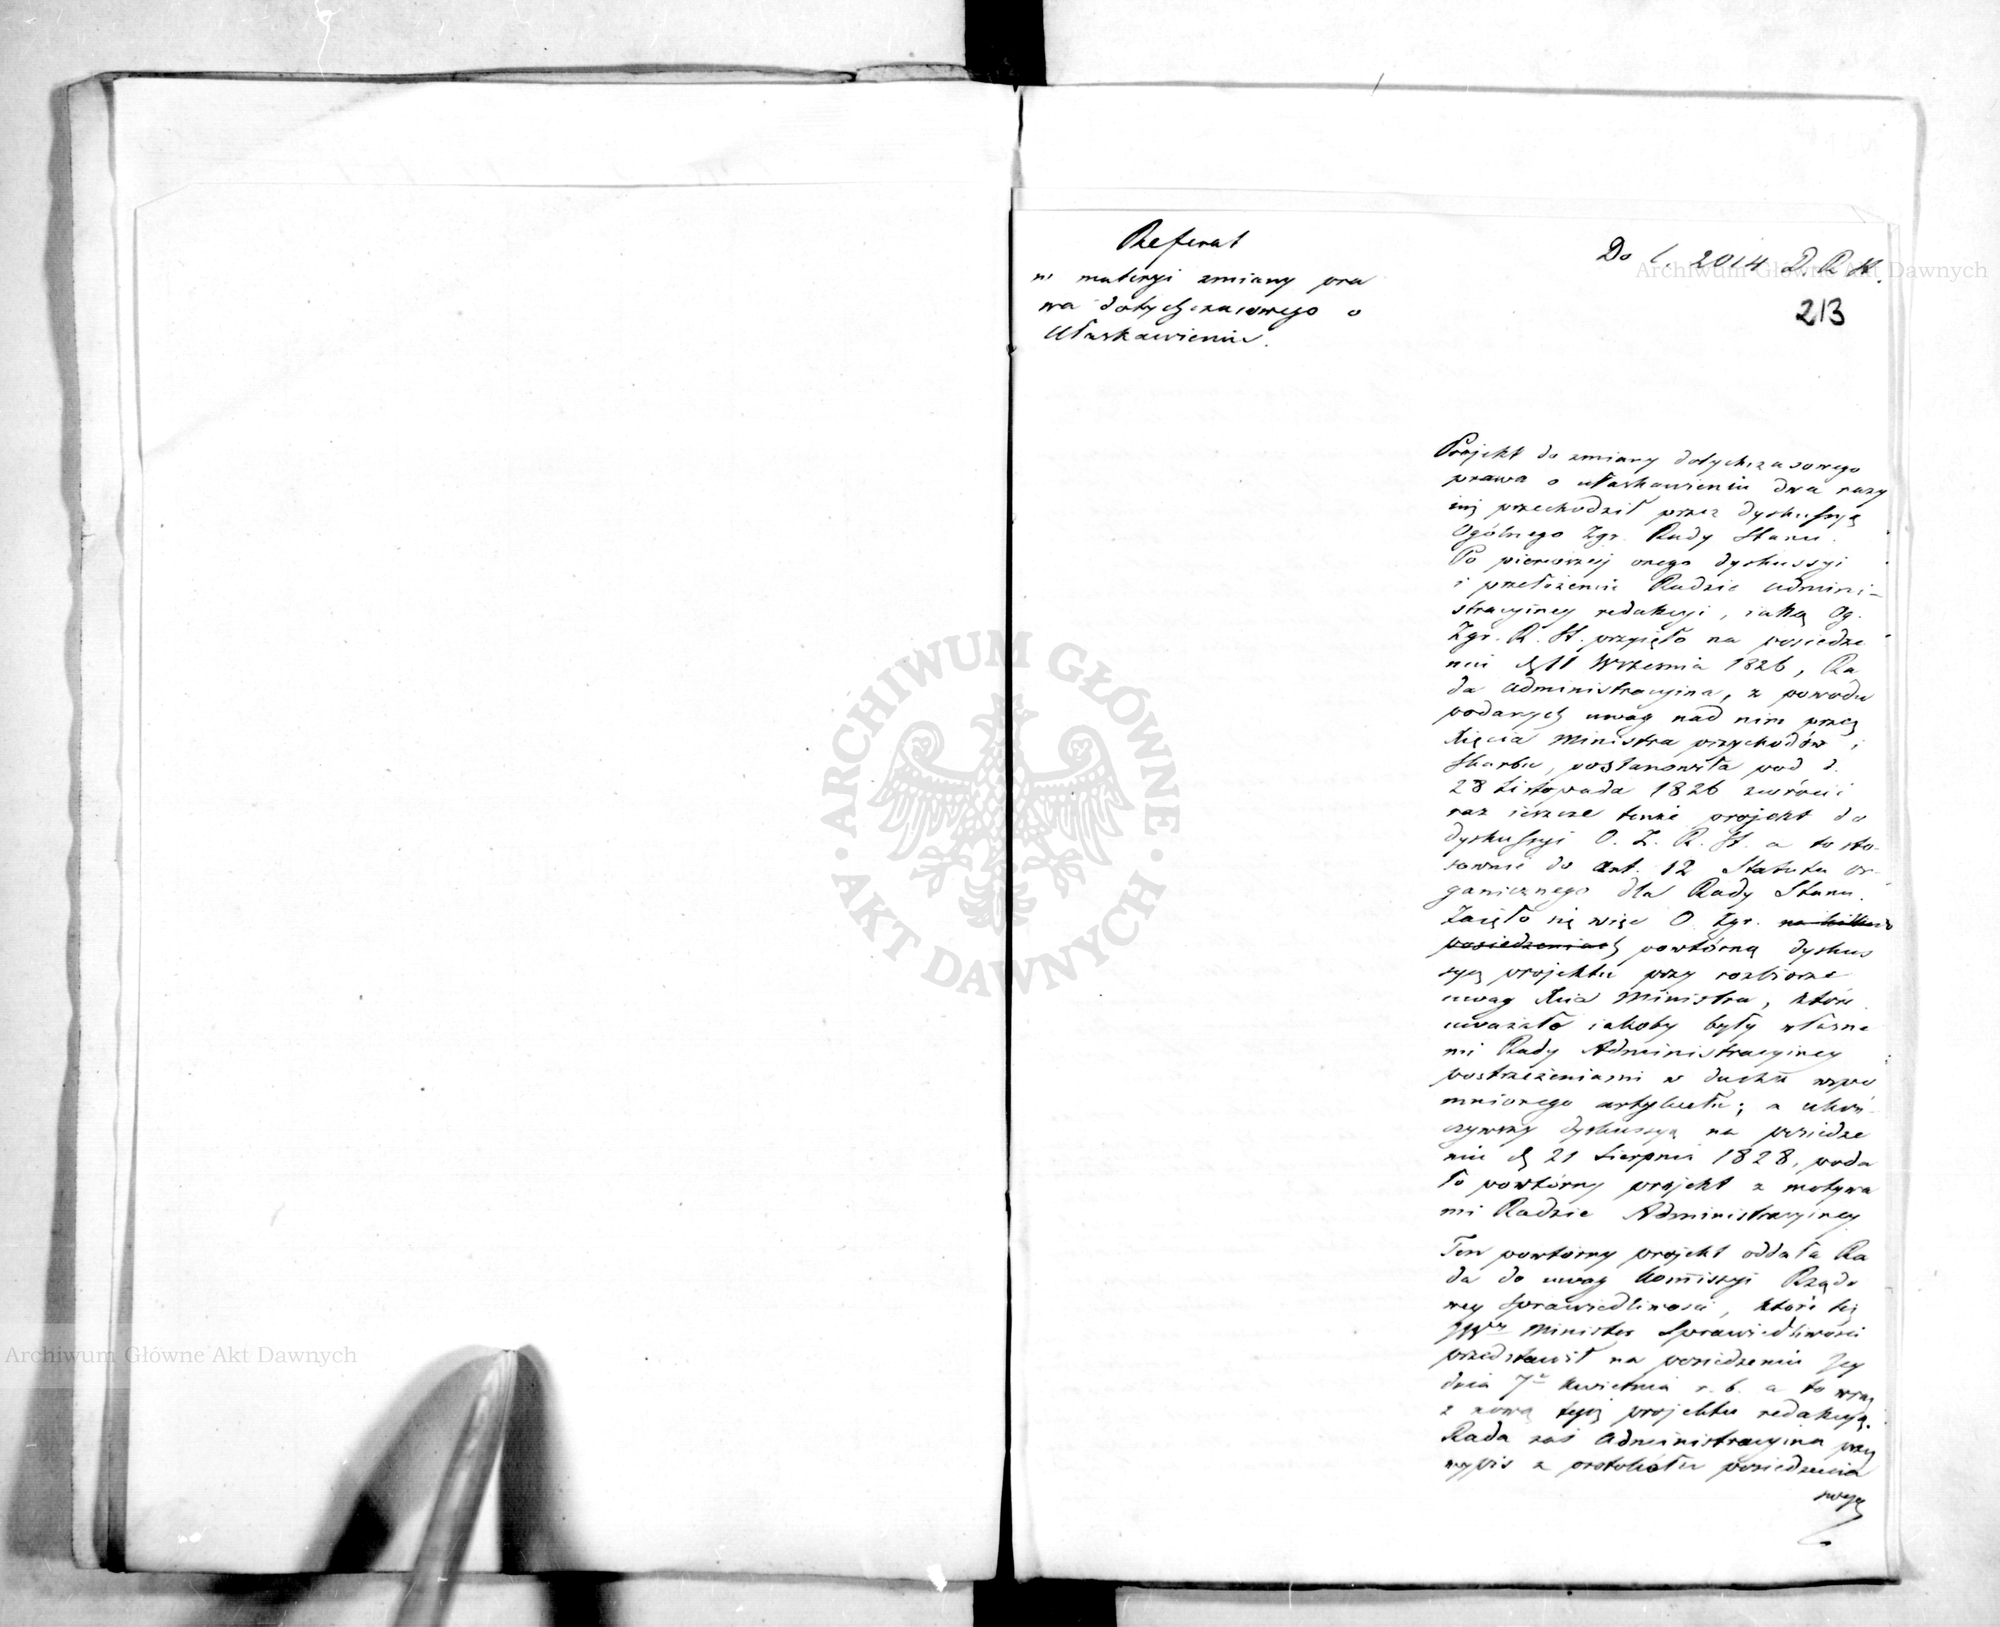 Referat
w materyi zmiany pra
wa dotychczasowego o
Ułaskawieniu.
Do l. 2014 D. R. St.
213
Projekt do zmiany dotychczasowego
prawa o ułaskawieniu dwa razy
iuż przechodził przez dyskussyą
Ogólnego Zgr. Rady Stanu.
Po pierwszej onego dyskussyi
i przełożeniu Radzie Admini-
stracyiney redakcyi, iaką Og.
Zgr. R. St. przyięło na posiedze
niu d. 11 Września 1826, Ra
da Administracyina, z powodu
podanych uwag nad nim przez
Xięcia Ministra przychodów i
Skarbu, postanowiła pod d.
28 Listopada 1826 zwrócić
raz ieszcze tenże projekt do
dyskussyi O. Z. R. St. a to sto-
sownie do art. 12 Statutu or-
ganicznego dla Rady Stanu.
Zaięło się więc O. Zgr. na kilku
posiedzeniach powtórną dyskus
syą projektu przy rozbiorze
uwag Xcia Ministra, które
uważało iakoby były własne
mi Rady Administracyiney
postrzeżeniami w duchu wspo
mnionego artykułu; a ukoń-
czywszy dyskussyą na posiedze
niu d. 21 Sierpnia 1828, poda
ło powtórny projekt z motywa
mi Radzie Administracyiney
Ten powtórny projekt oddała Ra
da do uwag Kommissyi Rządo
wey Sprawiedliwości, które tej
Minister Sprawiedliwości
przedstawił na posiedzeniu Jey
dnia 7º Kwietnia r. b. a to wraz
z nową tegoż projektu redakcyą.
Rada zaś Administracyina przez
wypis z protokołu posiedzenia
swego
ARCHIWUM GŁÓWNE · AKT DAWNYCH ·
Archiwum Główne Akt Dawnych
Archiwum Główne Akt Dawnych